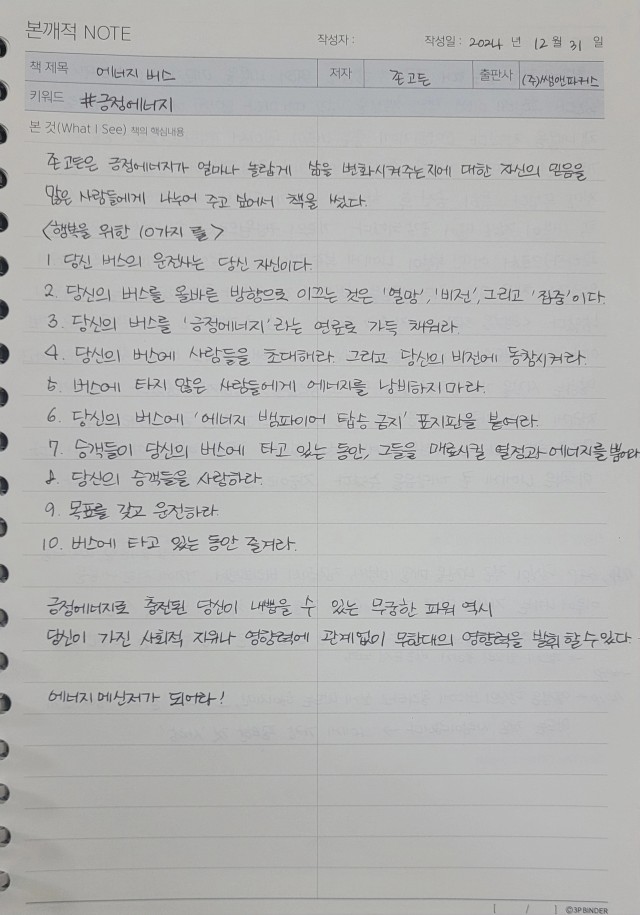 본깨적 NOTE
작성자 : 작성일 : 2024 년 12 월 31 일
책 제목 에너지 버스 저자 존고든 출판사 (주)쌤앤파커스
키워드 #긍정에너지
본 것(What I See) 책의 핵심내용
존고든은 긍정에너지가 얼마나 놀랍게 삶을 변화시켜주는지에 대한 자신의 믿음을
많은 사람들에게 나누어 주고 싶어서 책을 썼다.
<행복을 위한 10가지 룰>
1 당신 버스의 운전사는 당신 자신이다.
2. 당신의 버스를 올바른 방향으로 이끄는 것은 '열망', '비전', 그리고 '집중'이다.
3. 당신의 버스를 '긍정에너지'라는 연료로 가득 채워라.
4. 당신의 버스에 사람들을 초대해라. 그리고 당신의 비전에 동참시켜라.
5. 버스에 타지 않은 사람들에게 에너지를 낭비하지마라.
6. 당신의 버스에 '에너지 뱀파이어 탑승 금지' 표지판을 붙여라.
7. 승객들이 당신의 버스에 타고 있는 동안, 그들을 매료시킬 열정과 에너지를 뿜어라
8. 당신의 승객들을 사랑하라.
9. 목표를 갖고 운전하라.
10. 버스에 타고 있는 동안 즐겨라.
긍정에너지로 충전된 당신이 내뿜을 수 있는 무궁한 파워 역시
당신이 가진 사회적 지위나 영향력에 관계없이 무한대의 영향력을 발휘 할 수 있다
에너지 메신저가 되어라!
[ / ] ©3P BINDER